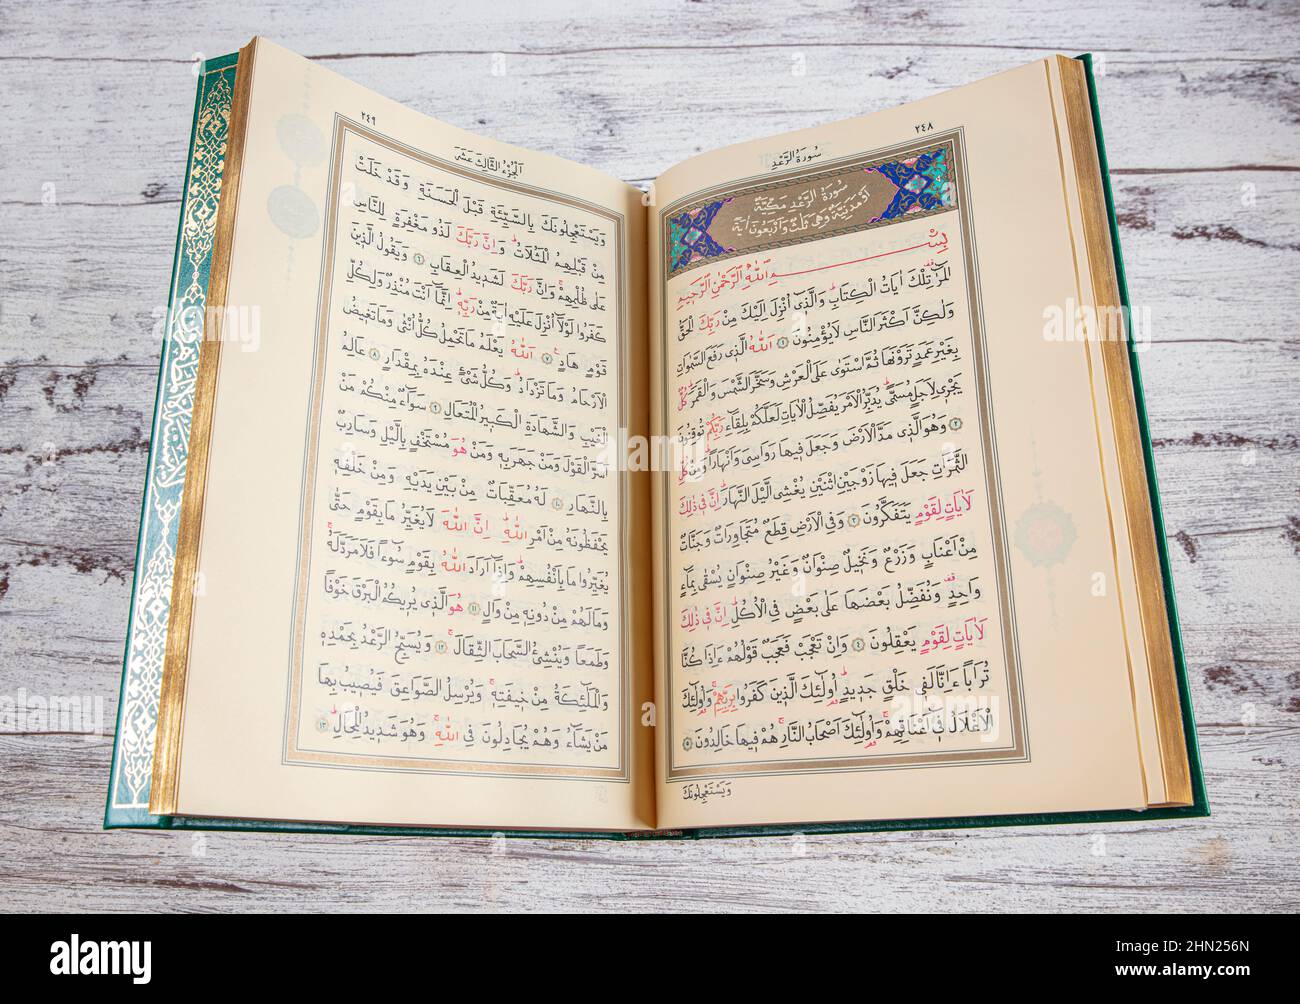 ٢٤٨
سُورَةُ الرَّعْدِ
سُورَةُ الرَّعْدِ مَكِّيَّةٌ
اَوْ مَدَنِيَّةٌ وَهِىَ ثَلٰثٌ وَاَرْبَعُونَ اٰيَةً
بِسْمِ اللّٰهِ الرَّحْمٰنِ الرَّحِيمِ
الٓمٓرٰ تِلْكَ اٰيَاتُ الْكِتَابِ وَالَّذٓى اُنْزِلَ اِلَيْكَ مِنْ رَبِّكَ الْحَقُّ
وَلٰكِنَّ اَكْثَرَ النَّاسِ لَايُؤْمِنُونَ ﴿١﴾ اَللّٰهُ الَّذٓى رَفَعَ السَّمٰوَاتِ
بِغَيْرِ عَمَدٍ تَرَوْنَهَا ثُمَّ اسْتَوٰى عَلَى الْعَرْشِ وَسَخَّرَ الشَّمْسَ وَالْقَمَرَ كُلٌّ
يَجْرٖى لِاَجَلٍ مُسَمًّى يُدَبِّرُ الْاَمْرَ يُفَصِّلُ الْاٰيَاتِ لَعَلَّكُمْ بِلِقَٓاءِ رَبِّكُمْ تُوقِنُونَ
﴿٢﴾ وَهُوَ الَّذٖى مَدَّ الْاَرْضَ وَجَعَلَ فٖيهَا رَوَاسِىَ وَاَنْهَارًا وَمِنْ كُلِّ
الثَّمَرَاتِ جَعَلَ فٖيهَا زَوْجَيْنِ اثْنَيْنِ يُغْشِى الَّيْلَ النَّهَارَ اِنَّ فٖى ذٰلِكَ
لَاٰيَاتٍ لِقَوْمٍ يَتَفَكَّرُونَ ﴿٣﴾ وَفِى الْاَرْضِ قِطَعٌ مُتَجَاوِرَاتٌ وَجَنَّاتٌ
مِنْ اَعْنَابٍ وَزَرْعٌ وَنَخٖيلٌ صِنْوَانٌ وَغَيْرُ صِنْوَانٍ يُسْقٰى بِمَٓاءٍ
وَاحِدٍ وَنُفَضِّلُ بَعْضَهَا عَلٰى بَعْضٍ فِى الْاُكُلِ اِنَّ فٖى ذٰلِكَ
لَاٰيَاتٍ لِقَوْمٍ يَعْقِلُونَ ﴿٤﴾ وَاِنْ تَعْجَبْ فَعَجَبٌ قَوْلُهُمْ ءَاِذَا كُنَّا
تُرَابًا ءَاِنَّا لَفٖى خَلْقٍ جَدٖيدٍ اُولٰٓئِكَ الَّذٖينَ كَفَرُوا بِرَبِّهِمْ وَاُولٰٓئِكَ
الْاَغْلَالُ فٖٓى اَعْنَاقِهِمْ وَاُولٰٓئِكَ اَصْحَابُ النَّارِ هُمْ فٖيهَا خَالِدُونَ ﴿٥﴾
وَيَسْتَعْجِلُونَكَ
٢٤٩
اَلْجُزْءُ الثَّالِثَ عَشَرَ
وَيَسْتَعْجِلُونَكَ بِالسَّيِّئَةِ قَبْلَ الْحَسَنَةِ وَقَدْ خَلَتْ
مِنْ قَبْلِهِمُ الْمَثُلَاتُ وَاِنَّ رَبَّكَ لَذُو مَغْفِرَةٍ لِلنَّاسِ
عَلٰى ظُلْمِهِمْ وَاِنَّ رَبَّكَ لَشَدٖيدُ الْعِقَابِ ﴿٦﴾ وَيَقُولُ الَّذٖينَ
كَفَرُوا لَوْلَٓا اُنْزِلَ عَلَيْهِ اٰيَةٌ مِنْ رَبِّهٖ اِنَّمَٓا اَنْتَ مُنْذِرٌ وَلِكُلِّ
قَوْمٍ هَادٍ ﴿٧﴾ اَللّٰهُ يَعْلَمُ مَا تَحْمِلُ كُلُّ اُنْثٰى وَمَا تَغٖيضُ
الْاَرْحَامُ وَمَا تَزْدَادُ وَكُلُّ شَىْءٍ عِنْدَهُ بِمِقْدَارٍ ﴿٨﴾ عَالِمُ
الْغَيْبِ وَالشَّهَادَةِ الْكَبٖيرُ الْمُتَعَالِ ﴿٩﴾ سَوَٓاءٌ مِنْكُمْ مَنْ
اَسَرَّ الْقَوْلَ وَمَنْ جَهَرَ بِهٖ وَمَنْ هُوَ مُسْتَخْفٍ بِالَّيْلِ وَسَارِبٌ
بِالنَّهَارِ ﴿١٠﴾ لَهُ مُعَقِّبَاتٌ مِنْ بَيْنِ يَدَيْهِ وَمِنْ خَلْفِهٖ
يَحْفَظُونَهُ مِنْ اَمْرِ اللّٰهِ اِنَّ اللّٰهَ لَايُغَيِّرُ مَا بِقَوْمٍ حَتّٰى
يُغَيِّرُوا مَا بِاَنْفُسِهِمْ وَاِذَٓا اَرَادَ اللّٰهُ بِقَوْمٍ سُٓوءًا فَلَا مَرَدَّ لَهُ
وَمَا لَهُمْ مِنْ دُونِهٖ مِنْ وَالٍ ﴿١١﴾ هُوَ الَّذٖى يُرٖيكُمُ الْبَرْقَ خَوْفًا
وَطَمَعًا وَيُنْشِئُ السَّحَابَ الثِّقَالَ ﴿١٢﴾ وَيُسَبِّحُ الرَّعْدُ بِحَمْدِهٖ
وَالْمَلٰٓئِكَةُ مِنْ خٖيفَتِهٖ وَيُرْسِلُ الصَّوَاعِقَ فَيُصٖيبُ بِهَا
مَنْ يَشَٓاءُ وَهُمْ يُجَادِلُونَ فِى اللّٰهِ وَهُوَ شَدٖيدُ الْمِحَالِ ﴿١٣﴾
alamy
Image ID: 2HN256N
www.alamy.com